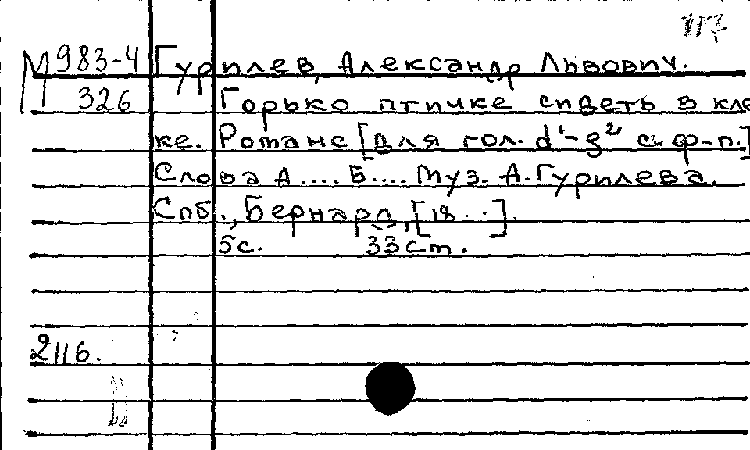 117
М 983-4 Гурилев, Александр Львович.
326 Горько птичке сидеть в кле
ке. Романс [для гол. d¹-g² с ф-п.]
Слова А.... Б.... Муз. А. Гурилева.
Спб., Бернард, [18..].
5с. 33 см.
2116.